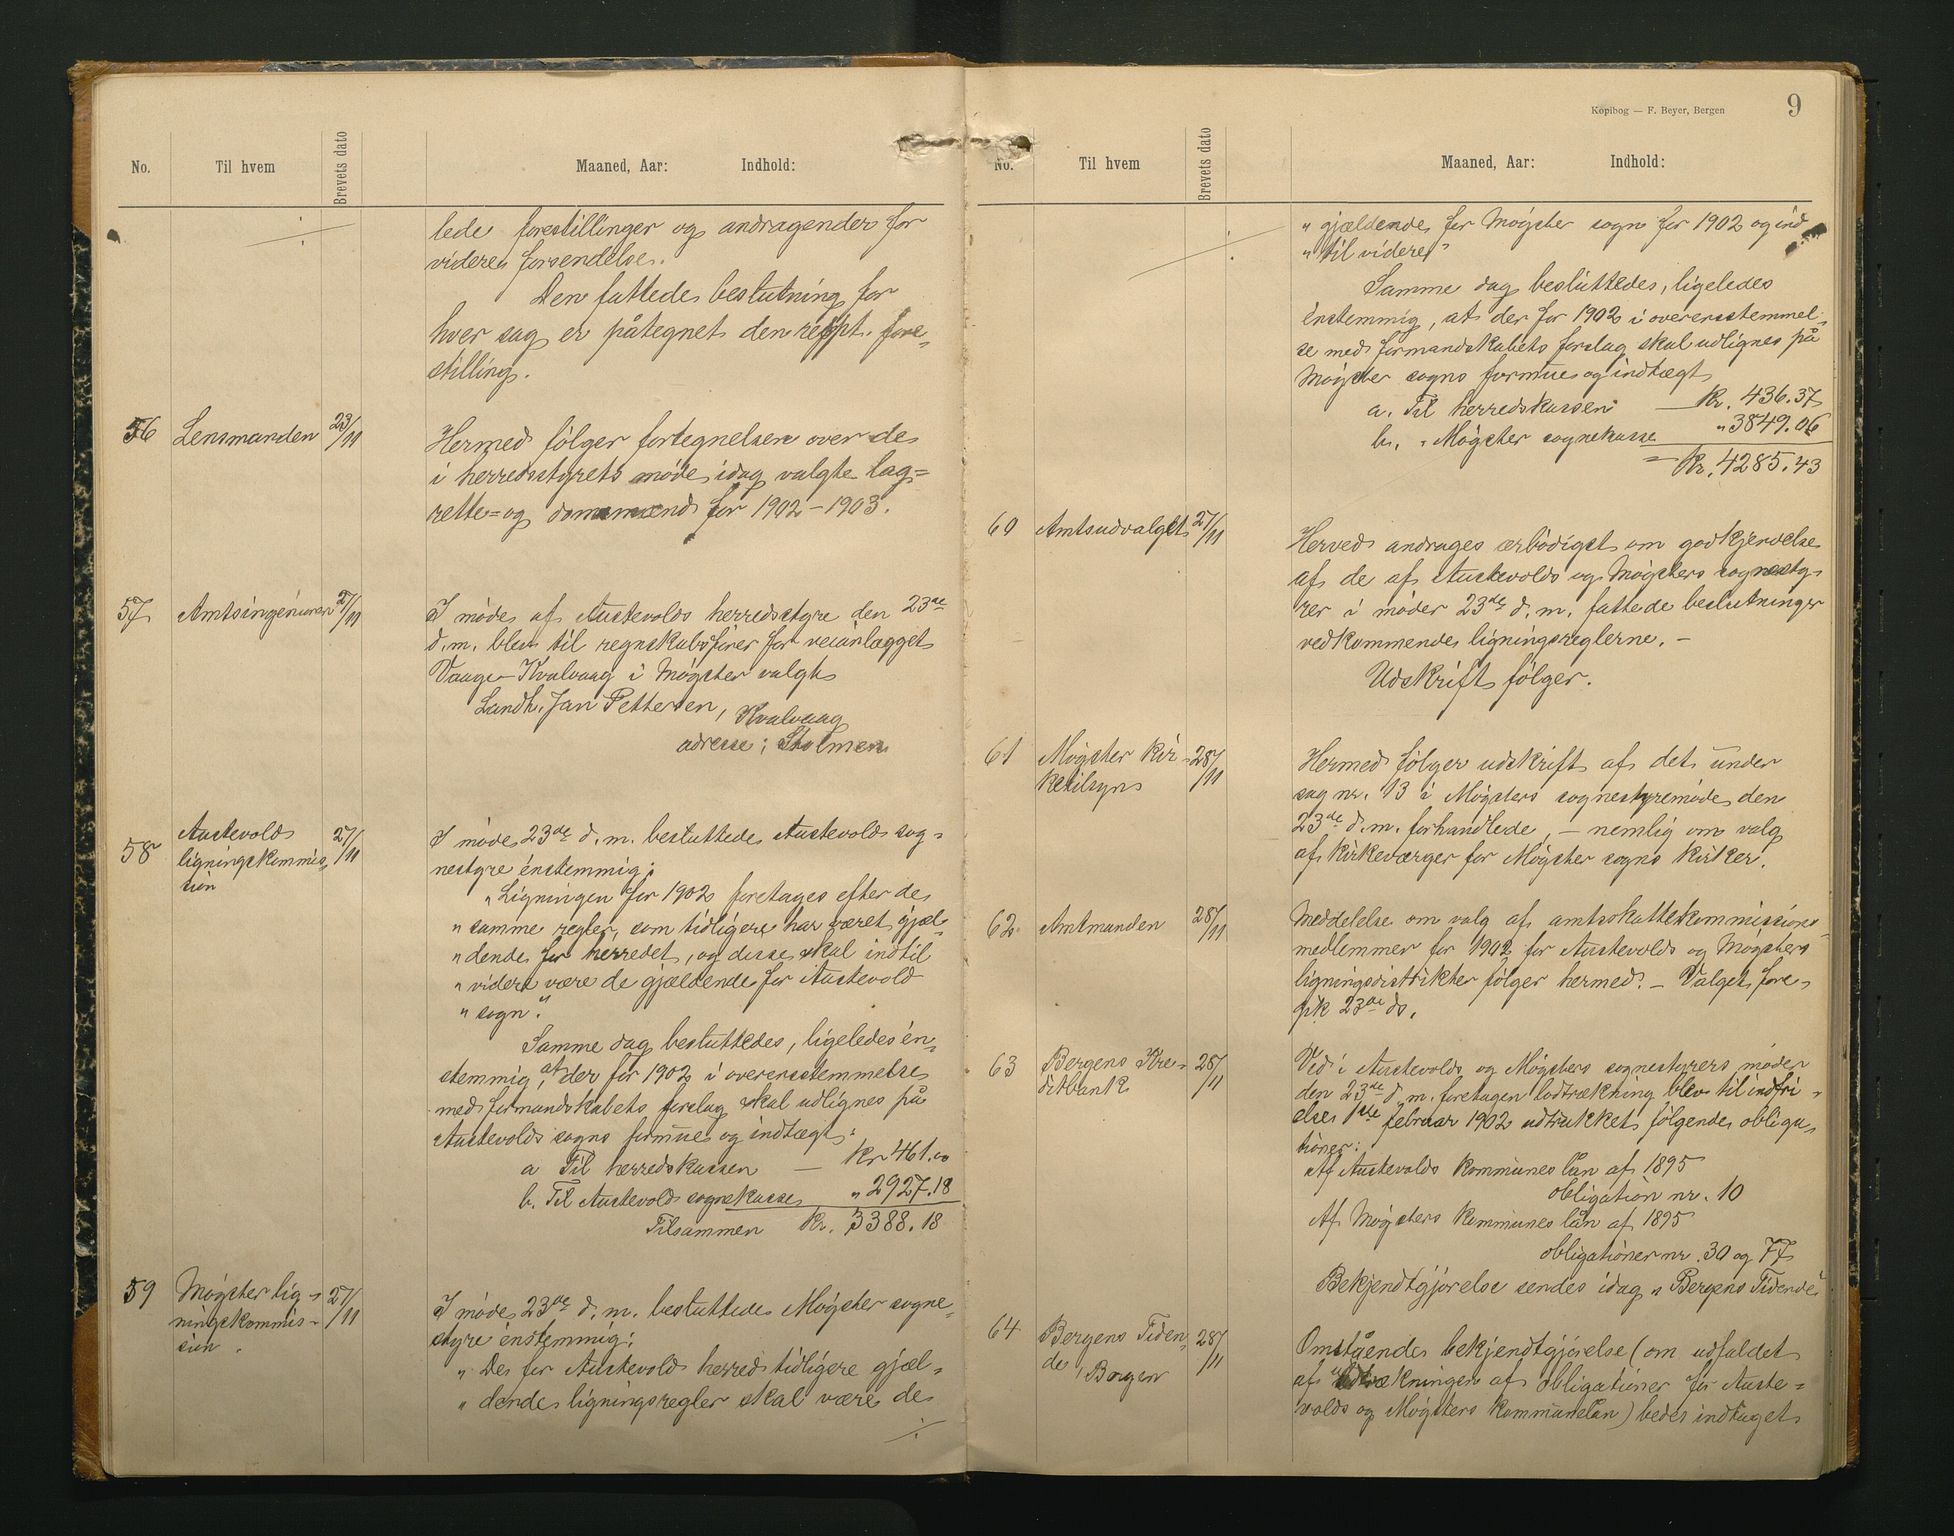 No. Til hvem Brevets dato Maaned, Aar: Indhold:
lede forestillinger og andragender for
videre forsendelse.
Den fattede beslutning for
hver sag er påtegnet den respt. fore-
stilling.
56 Lensmanden 23/11 Hermed følger fortegnelsen over de
i herredsstyrets møde idag valgte lag=
rette= og domsmænd for 1902 – 1903.
57 Amtsingeniøren 27/11 I møde af Austevolds herredsstyre den 23de
d.m. blev til regnskabsfører for veianlægget
Vaage – Kvalvaag i Møgster valgt
Landh. Jan Pettersen, Kvalvaag
adresse: Stolmen
58 Austevolds
ligningskommis-
sion 27/11
I møde 23de d.m. besluttede Austevold sog-
nestyre énstemmig:
„Ligningen for 1902 foretages efter de
„samme regler, som tidligere har været gjæl-
„dende for herredet, og disse skal indtil
„videre være de gjældende for Austevold
„sogn."
Samme dag besluttedes, ligeledes én-
stemmig, at der for 1902 i overensstemmelse
med formandskabets forslag skal udlignes på
Austevolds sogns formue og indtægt:
a Til herredskassen — Kr 461.00
b. Til Austevold sognekasse „ 2927.18
Tilsammen Kr. 3388.18
59 Møgster lig-
ningskommis-
sion. 27/11
I møde 23de d.m. besluttede Møgster sogne-
styre énstemmig:
„De for Austevold herred tidligere gjæl-
„dende ligningsregler skal være de
Kopibog — F. Beyer, Bergen 9
No. Til hvem Brevets dato Maaned, Aar: Indhold:
„gjældende for Møgster sogn for 1902 og ind
„til videre"
Samme dag besluttedes, ligeledes
énstemmig, at der for 1902 i overensstemmel-
se med formandskabets forslag skal udlignes på
Møgster sogns formue og indtægt
a. Til herredskassen — Kr. 436.37
b. „ Møgster sognekasse „ 3849.06
= Kr. 4285.43
60 Amtsudvalget 27/11 Herved andrages ærbødigst om godkjendelse
af de af Austevolds og Møgsters sognesty-
rer i møder 23de d.m. fattede beslutninger
vedkommende ligningsreglerne. –
Udskrift følger.
61 Møgster kir-
ketilsyn 28/11
Hermed følger udskrift af det under
sag nr. 13 i Møgsters sognestyremøde den
23de d.m. forhandlede, – nemlig om valg
af kirkeværger for Møgster sogns kirker.
62. Amtmanden 28/11 Meddelelse om valg af amtsskattekommissions-
medlemmer for 1902 for Austevolds og Møgsters
ligningsdistrikter følger hermed. – Valget fore-
gik 23de ds.
63 Bergens Kre-
ditbank 28/11
Ved i Austevolds og Møgsters sognestyrers møder
den 23de d.m. foretagen lodtrækning blev til indfri-
else 1ste februar 1902 udtrukket følgende obliga-
tioner:
Af Austevolds kommunes lån af 1895
obligation nr. 10
Af Møgsters kommunes lån af 1895
obligationer nr. 30 og 77
Bekjendtgjørelse sendes idag „Bergens Tidende"
64 Bergens Tiden-
de, Bergen 28/11
Omstående bekjendtgjørelse (om udfaldet
af udtrækningen af obligationer for Auste=
volds og Møgsters kommunelån) bedes indtaget